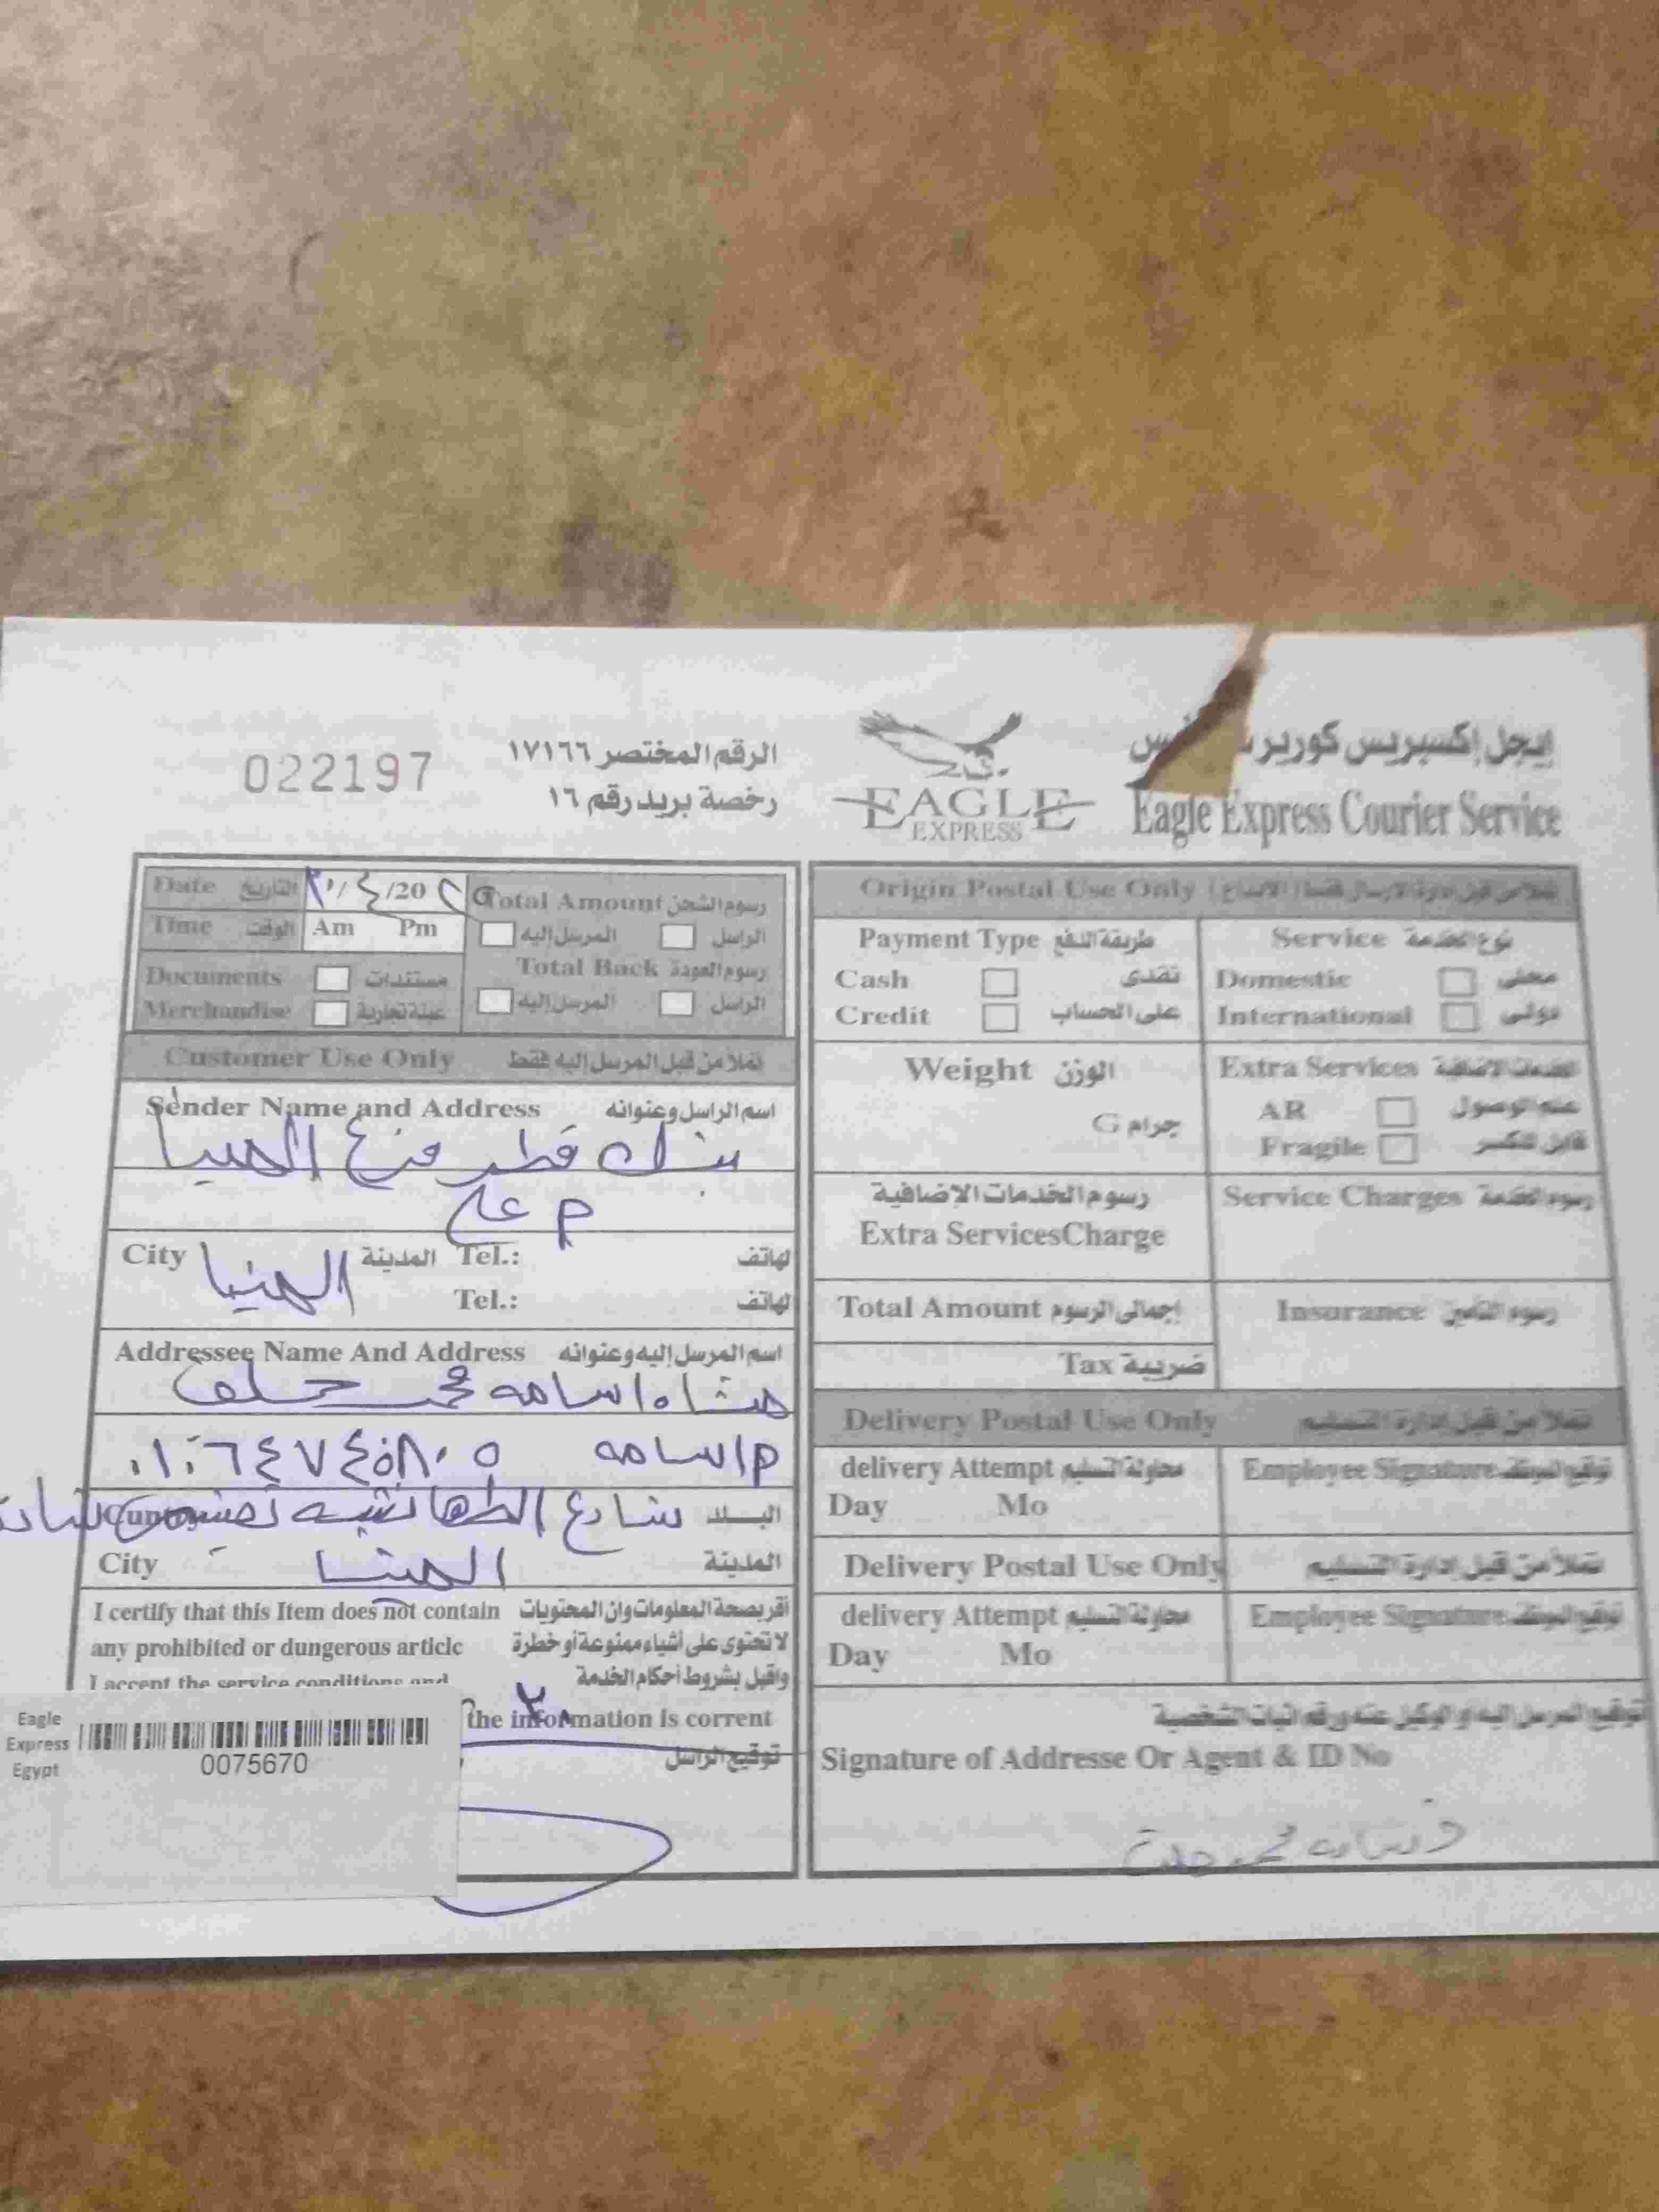 022197
الرقم المختصر ١٧١٦٦
رخصة بريد رقم ١٦
EAGLE
EXPRESS
إيجل إكسبريس كورير
Eagle Express Courier Service
Date التاريخ /٤/20
Time الوقت Am Pm
Documents مستندات
Merchandise عينة تجارية
Total Amount رسوم الشحن
الراسل المرسل إليه
Total Back رسوم العودة
الراسل المرسل إليه
Customer Use Only تملأ من قبل المرسل إليه فقط
Sender Name and Address اسم الراسل وعنوانه
بنك قطر فرع المنيا
م علي
City المنيا المدينة Tel.: لهاتف
Tel.: لهاتف
Addressee Name And Address اسم المرسل إليه وعنوانه
اسامه محمد خلف
م اسامه
البلد شارع
City المنيا المدينة
I certify that this Item does not contain أقر بصحة المعلومات وان المحتويات
any prohibited or dangerous article لا تحتوى على أشياء ممنوعة أو خطرة
I accept the service conditions and واقبل بشروط أحكام الخدمة
the information is corrent
توقيع الراسل
Eagle
Express
Egypt
0075670
Origin Postal Use Only
Payment Type طريقة الدفع
Cash نقدى
Credit على الحساب
Service نوع الخدمة
Domestic محلى
International دولى
Weight الوزن
G جرام
Extra Services الخدمات الإضافية
AR علم الوصول
Fragile قابل للكسر
رسوم الخدمات الإضافية
Extra ServicesCharge
Service Charges رسوم الخدمة
Total Amount إجمالى الرسوم
Tax ضريبة
Insurance رسوم التأمين
Delivery Postal Use Only تملأ من قبل إدارة التسليم
delivery Attempt محاولة التسليم
Day Mo
Employee Signature توقيع الموظف
Delivery Postal Use Only تملأ من قبل إدارة التسليم
delivery Attempt محاولة التسليم
Day Mo
Employee Signature توقيع الموظف
توقيع المرسل إليه او الوكيل عنه ورقم اثبات الشخصية
Signature of Addresse Or Agent & ID No